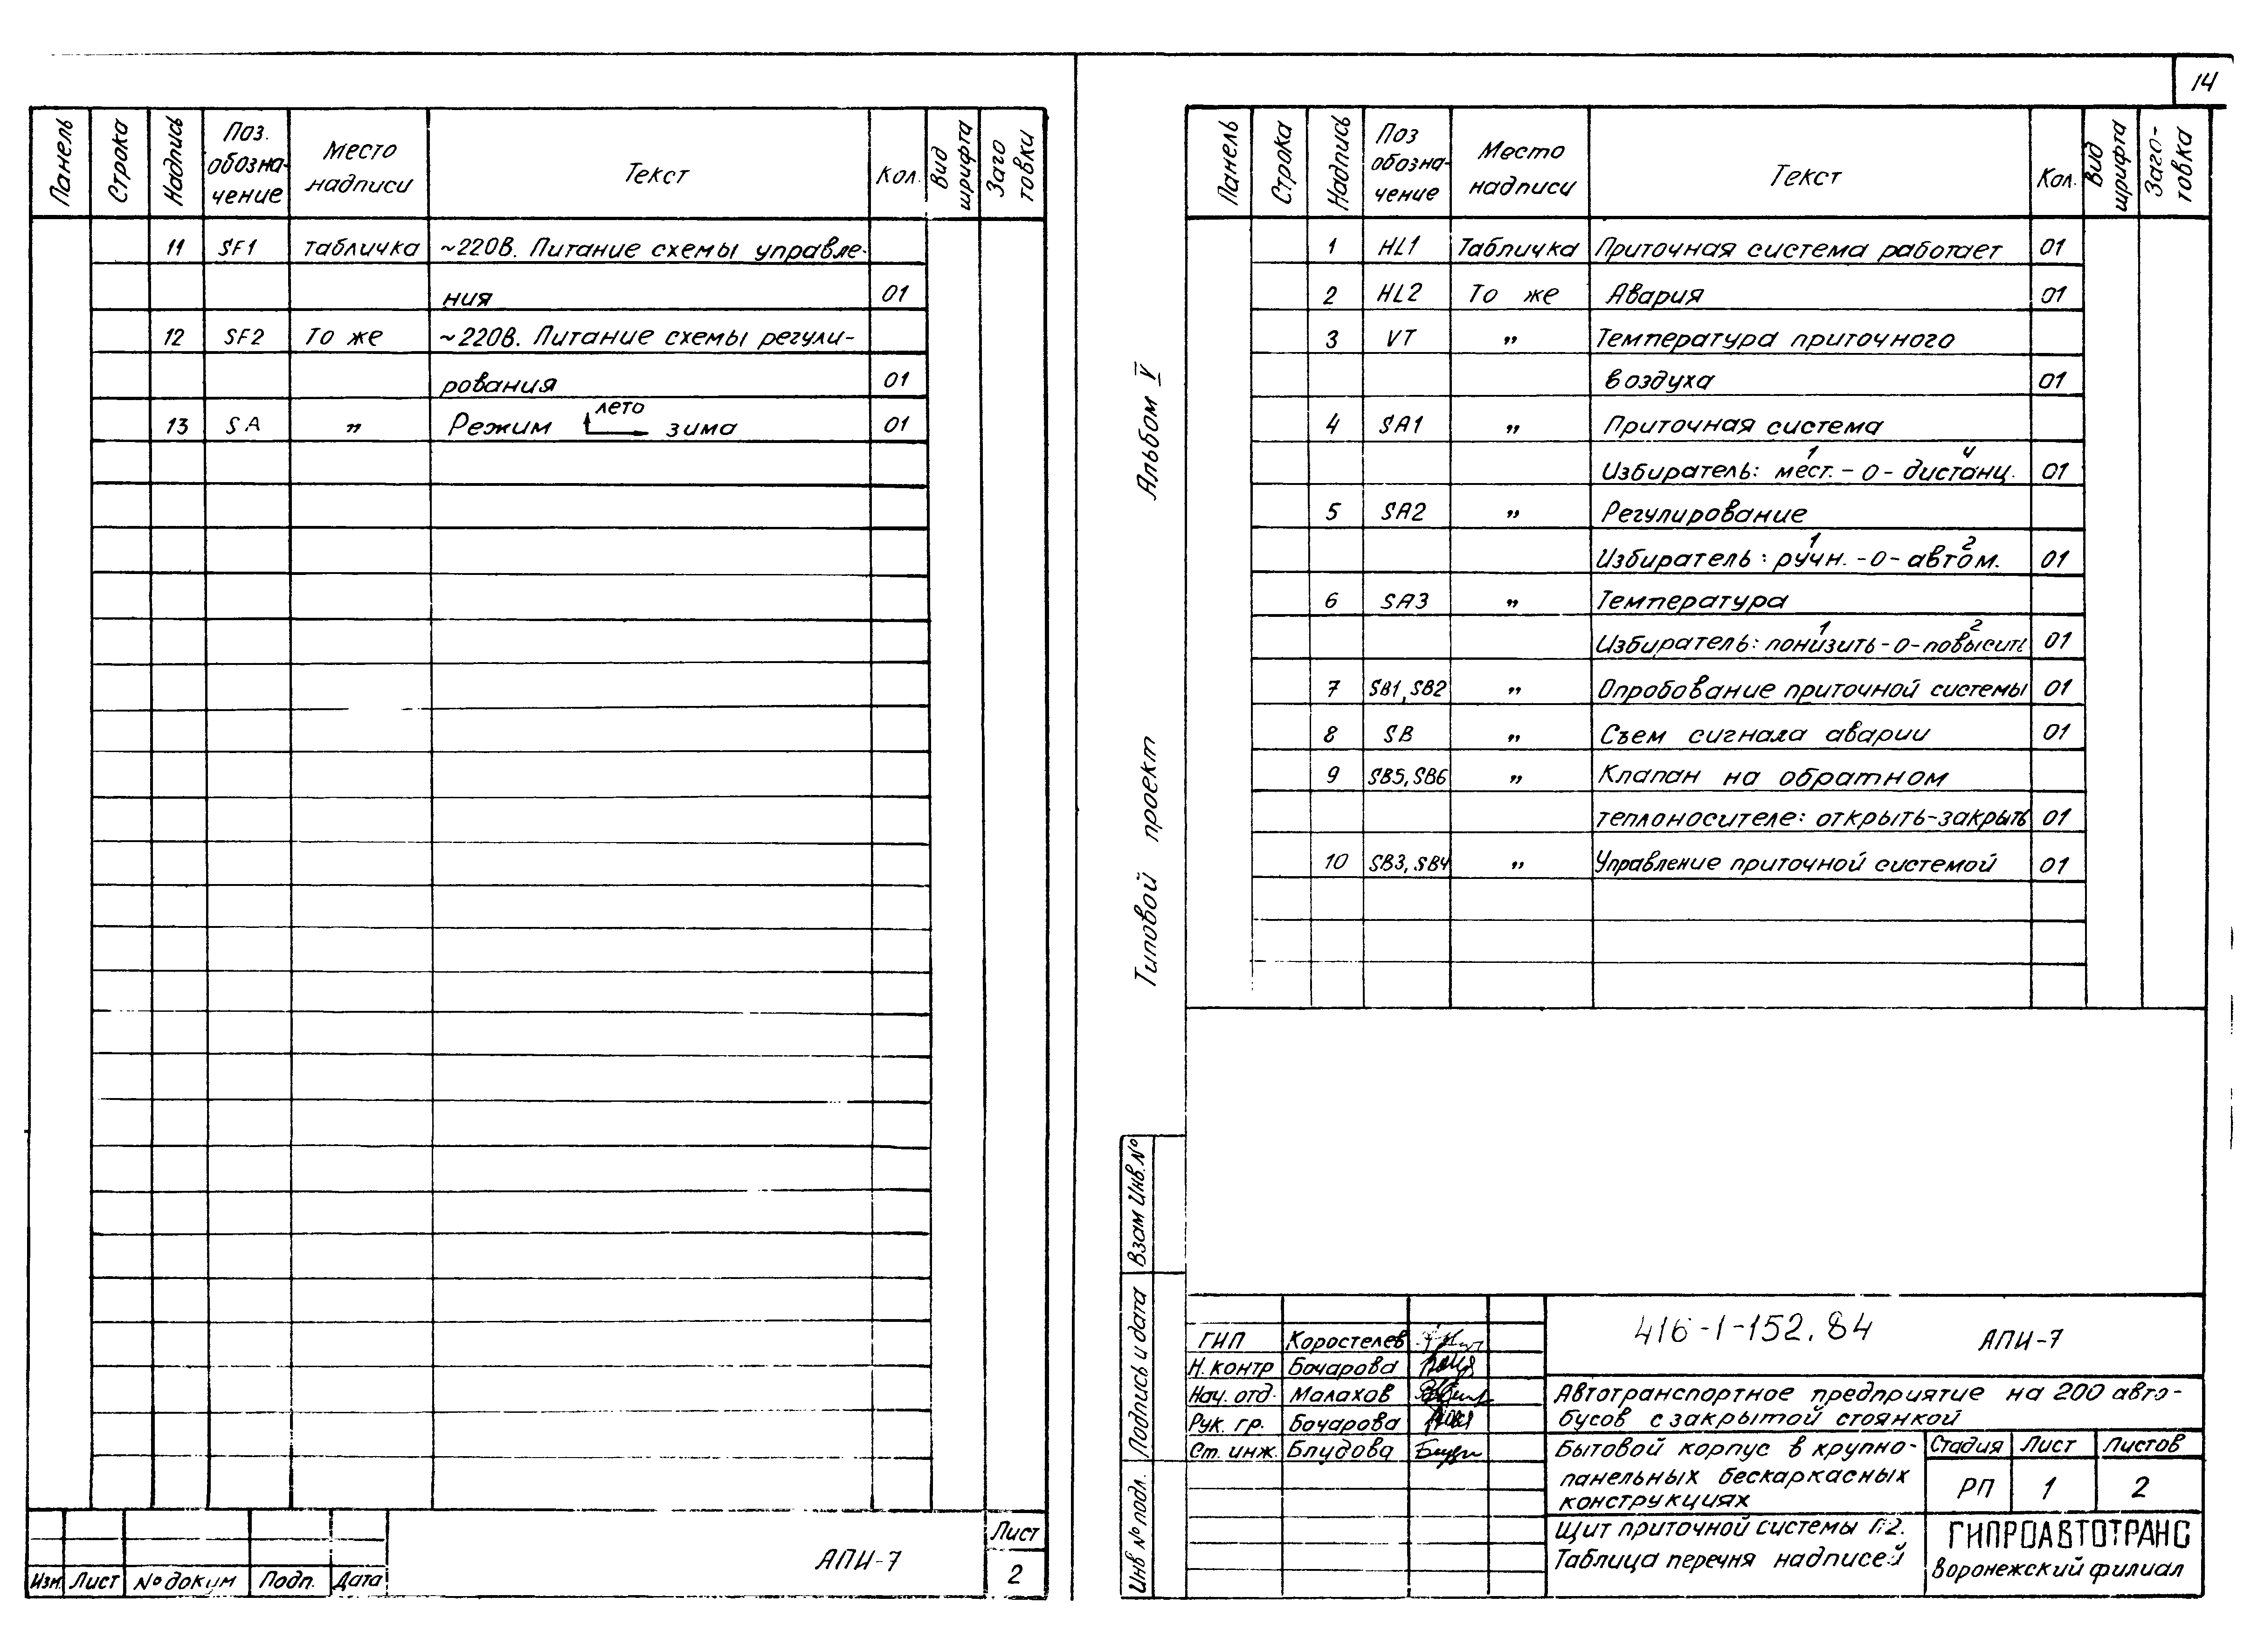 14
Панель Строка Надпись Поз. обозна-чение Место надписи Текст Кол. Вид шрифта Заго товки
11 SF1 табличка ~220В. Питание схемы управле-
ния 01
12 SF2 То же ~220В. Питание схемы регули-
рования 01
лето
13 SA " Режим зима 01
АПИ-7
Лист
2
Изм. Лист № докум Подп. Дата
Альбом V
Типовой проект
Панель Строка Надпись Поз обозна-чение Место надписи Текст Кол. Вид шрифта Заго-товка
1 HL1 Табличка Приточная система работает 01
2 HL2 То же Авария 01
3 VT " Температура приточного
воздуха 01
4 SA1 " Приточная система
1 4
Избиратель: мест. - 0 - дистанц. 01
5 SA2 " Регулирование
1 2
Избиратель: ручн. - 0 - автом. 01
6 SA3 " Температура
1 2
Избиратель: понизить - 0 - повысить 01
7 SB1, SB2 " Опробование приточной системы 01
8 SB " Съем сигнала аварии 01
9 SB5, SB6 " Клапан на обратном
теплоносителе: открыть-закрыть 01
10 SB3, SB4 " Управление приточной системой 01
Взам Инв. №
Подпись и дата
Инв № подл.
416-1-152.84 АПИ-7
ГИП Коростелев
Н. контр Бочарова
Нач. отд. Малахов
Рук. гр. Бочарова
Ст. инж. Блудова
Автотранспортное предприятие на 200 авто-
бусов с закрытой стоянкой
Бытовой корпус в крупно-
панельных бескаркасных
конструкциях
Стадия Лист Листов
РП 1 2
Щит приточной системы П2.
Таблица перечня надписей
ГИПРОАВТОТРАНС
Воронежский филиал